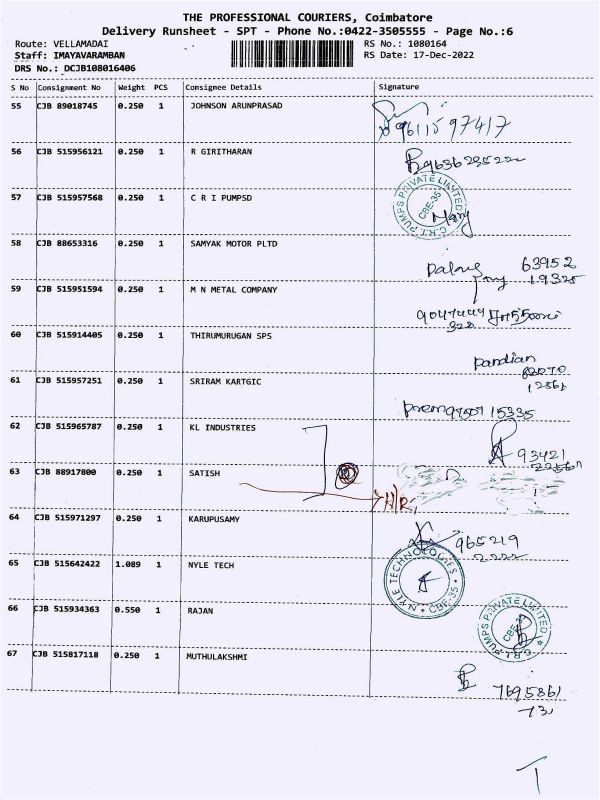 THE PROFESSIONAL COURIERS, Coimbatore
Delivery Runsheet - SPT - Phone No.:0422-3505555 - Page No.:6
Route: VELLAMADAI RS No.: 1080164
Staff: IMAYAVARAMBAN RS Date: 17-Dec-2022
DRS No.: DCJB108016406
S No Consignment No Weight PCS Consignee Details Signature
55 CJB 89018745 0.250 1 JOHNSON ARUNPRASAD
9611597417
56 CJB 515956121 0.250 1 R GIRITHARAN
57 CJB 515957568 0.250 1 C R I PUMPSD
C.R.I. PUMPS PRIVATE LIMITED CBE-35
58 CJB 88653316 0.250 1 SAMYAK MOTOR PLTD
63952
19325
59 CJB 515951594 0.250 1 M N METAL COMPANY
60 CJB 515914405 0.250 1 THIRUMURUGAN SPS
pandian
61 CJB 515957251 0.250 1 SRIRAM KARTGIC
prem 9750715335
62 CJB 515965787 0.250 1 KL INDUSTRIES
93421
63 CJB 88917800 0.250 1 SATISH
H/R
64 CJB 515971297 0.250 1 KARUPUSAMY
965219
2222
65 CJB 515642422 1.089 1 NYLE TECH
NYLE TECHNOLOGIES CBE-35
66 CJB 515934363 0.550 1 RAJAN
C.R.I. PUMPS PRIVATE LIMITED CBE-35
67 CJB 515817118 0.250 1 MUTHULAKSHMI
7695861